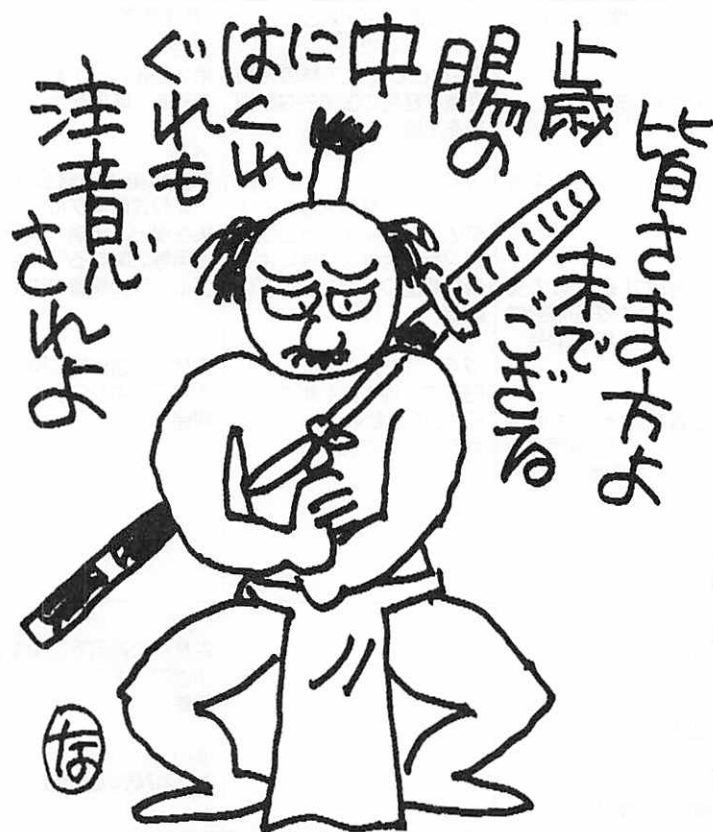 皆さま方よ
歳末で
ござる
腸の
中
に
はくれ
ぐれも
注意
されよ
な